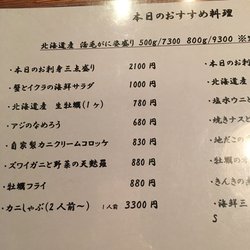 本日のおすすめ料理
北海道産 活毛がに姿盛り 500g/7300 800g/9300 ※
・本日のお刺身三点盛り 2100円
・蟹とイクラの海鮮サラダ 1000円
・北海道産 生牡蠣(1ヶ) 780円
・アジのなめろう 680円
・自家製カニクリームコロッケ 830円
・ズワイガニと野菜の天麩羅 880円
・牡蠣フライ 880円
・カニしゃぶ(2人前~) 1人前 3300円
・本日のお
・塩水ウニ
・焼きナスと
・地だこの
・きんきの
・海鮮三
S